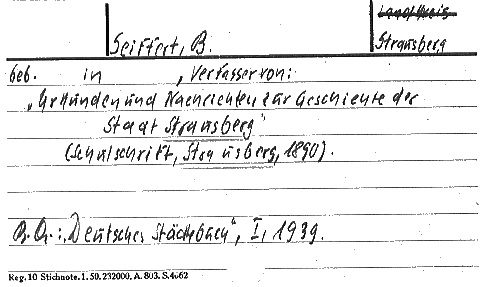 Land/Kreis
Seiffert, B.
Strausberg
geb. in , Verfasser von:
„Urkunden und Nachrichten zur Geschichte der
Stadt Strausberg"
(Schulschrift, Strausberg, 1890).
B.Qu.: „Deutsches Städtebuch", I, 1939.
Reg. 10 Stichnote. 1. 50. 232000. A. 803. S. 4662